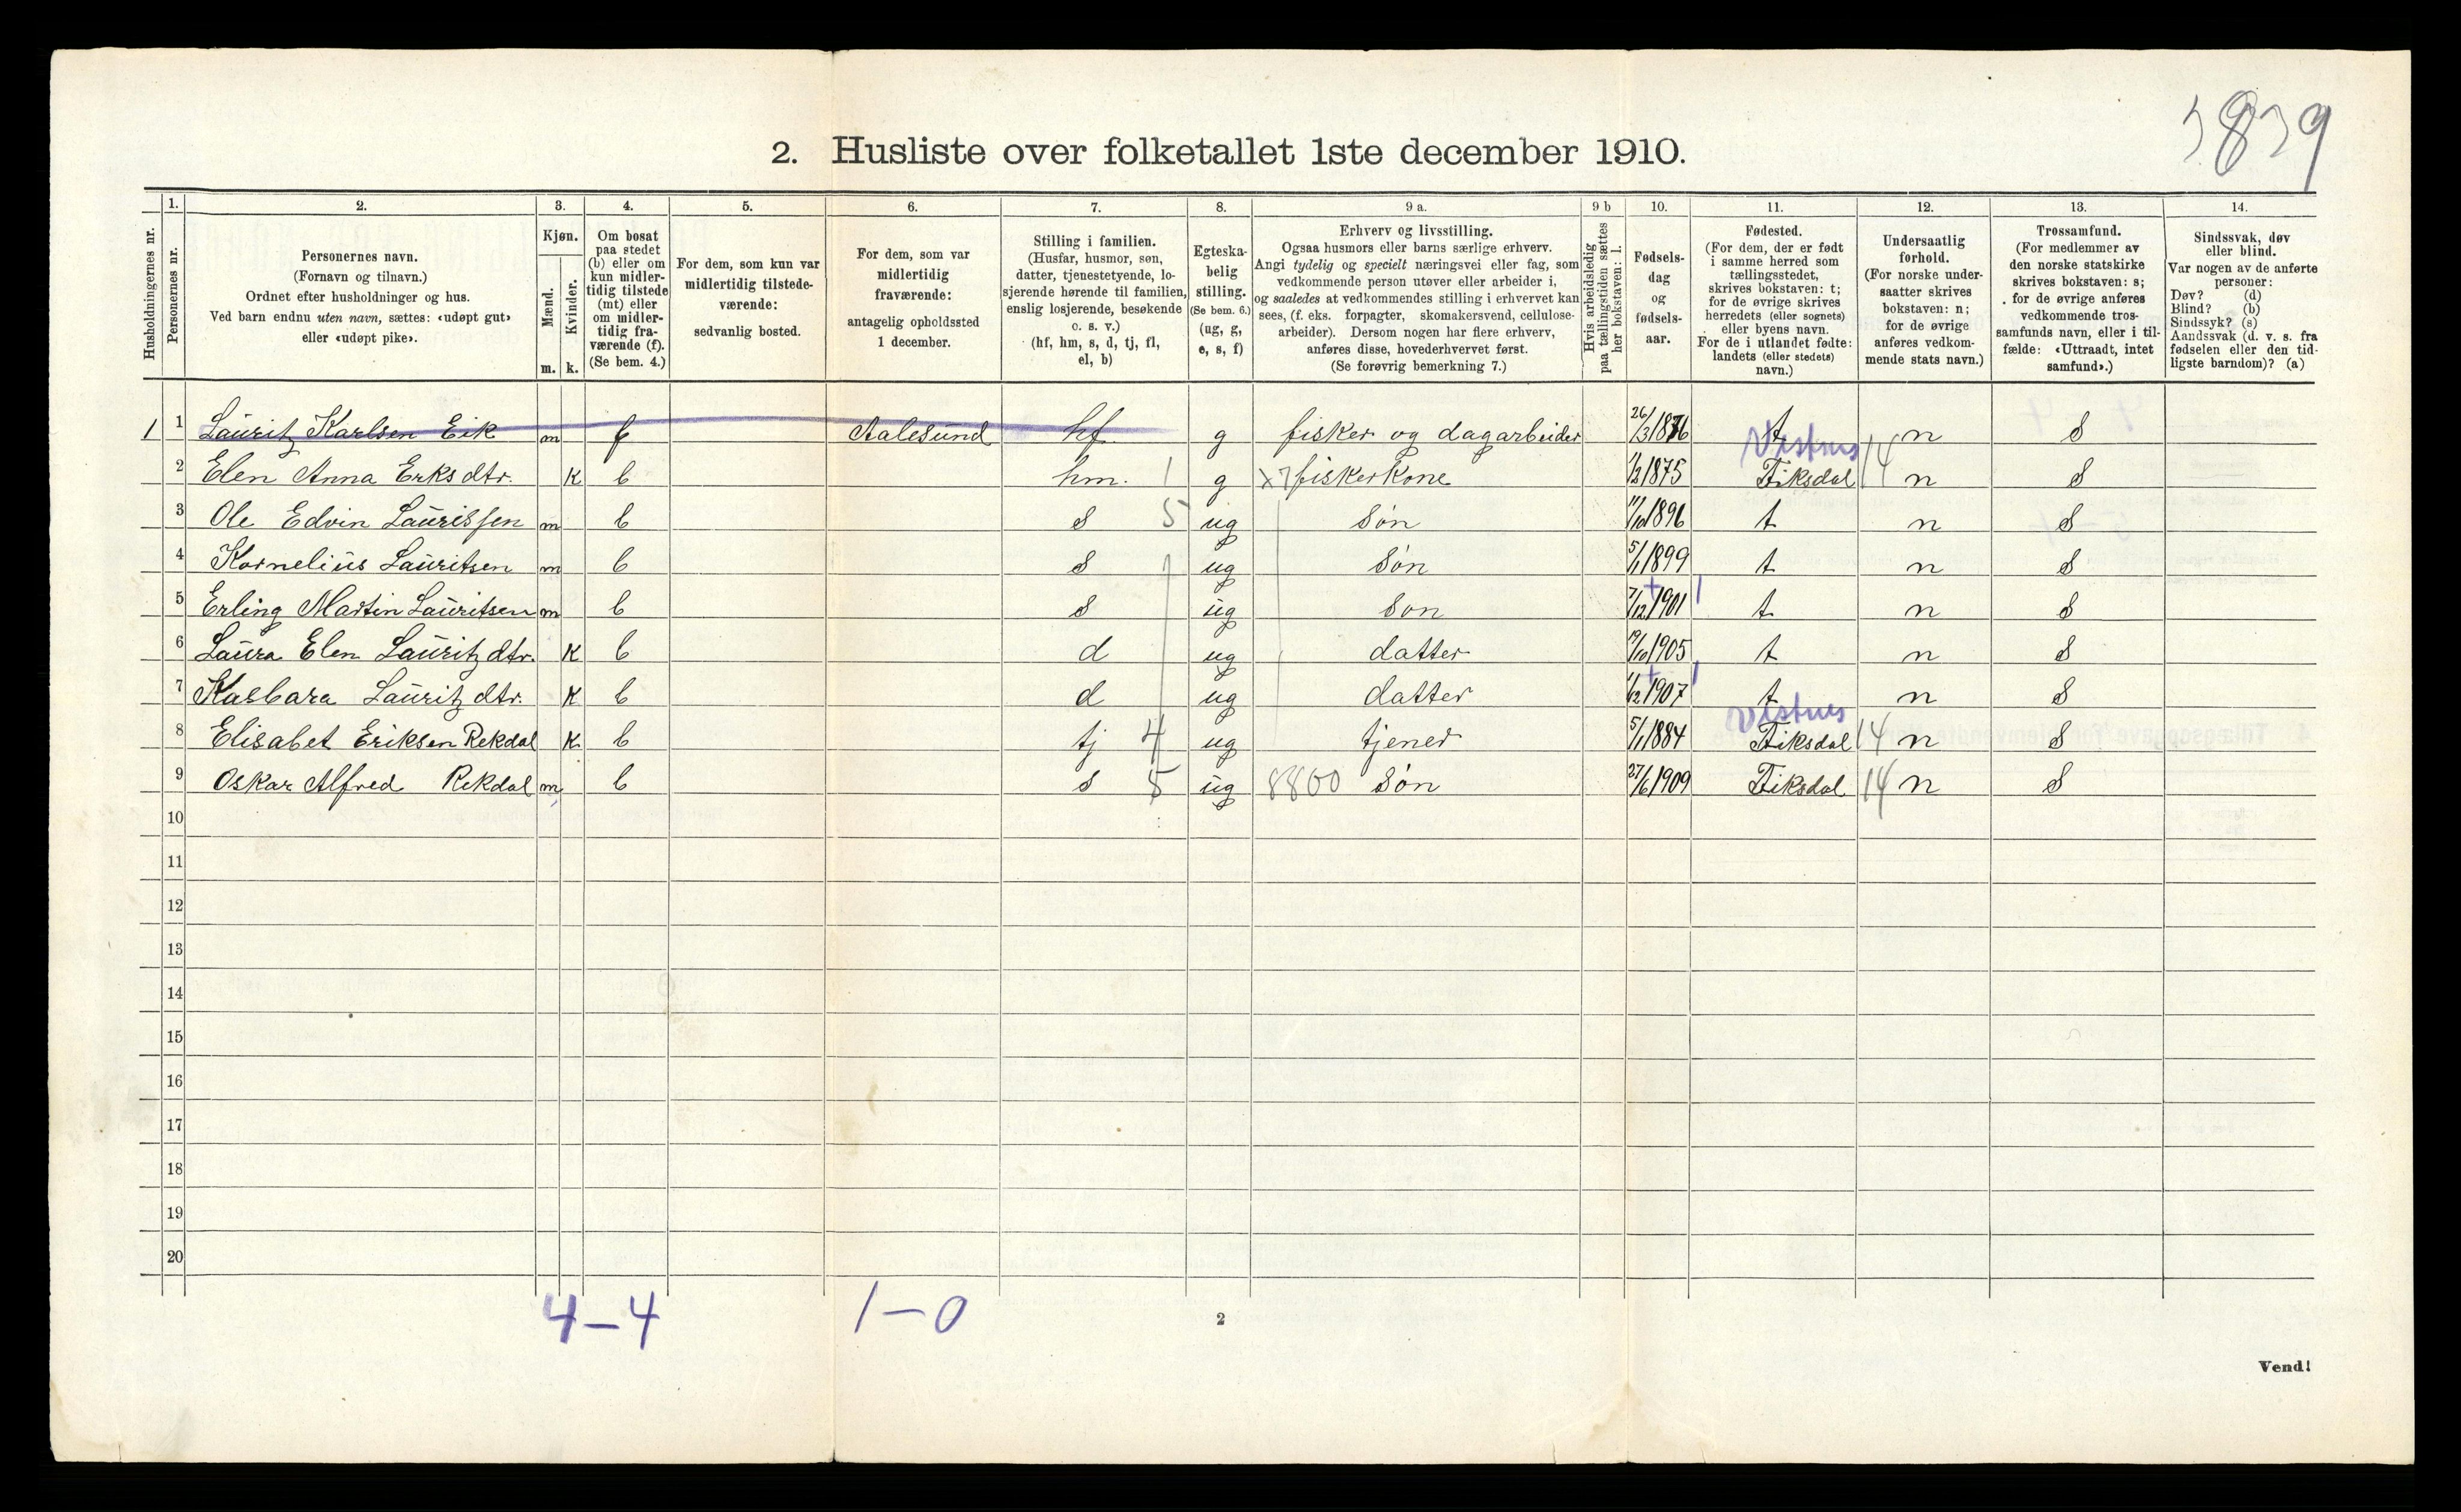 3839
2. Husliste over folketallet 1ste december 1910.
Husholdningernes nr.
1.
Personernes nr.
2.
Personernes navn.
(Fornavn og tilnavn.)
Ordnet efter husholdninger og hus.
Ved barn endnu uten navn, sættes: «udøpt gut»
eller «udøpt pike».
3.
Kjøn.
Mænd.
Kvinder.
m. k.
4.
Om bosat
paa stedet
(b) eller om
kun midler-
tidig tilstede
(mt) eller
om midler-
tidig fra-
værende (f).
(Se bem. 4.)
5.
For dem, som kun var
midlertidig tilstede-
værende:
sedvanlig bosted.
6.
For dem, som var
midlertidig
fraværende:
antagelig opholdssted
1 december.
7.
Stilling i familien.
(Husfar, husmor, søn,
datter, tjenestetyende, lo-
sjerende hørende til familien,
enslig losjerende, besøkende
o. s. v.)
(hf, hm, s, d, tj, fl,
el, b)
8.
Egteska-
belig
stilling.
(Se bem. 6.)
(ug, g,
e, s, f)
9 a.
Erhverv og livsstilling.
Ogsaa husmors eller barns særlige erhverv.
Angi tydelig og specielt næringsvei eller fag, som
vedkommende person utøver eller arbeider i,
og saaledes at vedkommendes stilling i erhvervet kan
sees, (f. eks. forpagter, skomakersvend, cellulose-
arbeider). Dersom nogen har flere erhverv,
anføres disse, hovederhvervet først.
(Se forøvrig bemerkning 7.)
9 b
Hvis arbeidsledig
paa tællingstiden sættes
her bokstaven: l.
10.
Fødsels-
dag
og
fødsels-
aar.
11.
Fødested.
(For dem, der er født
i samme herred som
tællingsstedet,
skrives bokstaven: t;
for de øvrige skrives
herredets (eller sognets)
eller byens navn.
For de i utlandet fødte:
landets (eller stedets)
navn.)
12.
Undersaatlig
forhold.
(For norske under-
saatter skrives
bokstaven: n;
for de øvrige
anføres vedkom-
mende stats navn.)
13.
Trossamfund.
(For medlemmer av
den norske statskirke
skrives bokstaven: s;
for de øvrige anføres
vedkommende tros-
samfunds navn, eller i til-
fælde: «Uttraadt, intet
samfund».)
14.
Sindssvak, døv
eller blind.
Var nogen av de anførte
personer:
Døv? (d)
Blind? (b)
Sindssyk? (s)
Aandssvak (d. v. s. fra
fødselen eller den tid-
ligste barndom)? (a)
1 1 Lauritz Karlsen Eik m f Aalesund hf g fisker og dagarbeider 26/3 1876 t n S
Vestnes
2 Elen Anna Eriksdtr. K b hm. 1 g x7 fiskerkone 1/2 1875 Fiksdal 14 n S
3 Ole Edvin Laurissen m b s 5 ug Søn 11/10 1896 t n S
4 Kornelius Lauritsen m b s ug Søn 5/1 1899 t n S
5 Erling Martin Lauritsen m b s ug Son 7/12 1901 t n S
6 Laura Elen Lauritz dtr. K b d ug datter 19/10 1905 t n S
7 Kasbara Lauritz dtr. K b d ug datter 1/12 1907 t n S
Vestnes
8 Elisabet Eriksen Rekdal K b tj 4 ug tjener 5/1 1884 Fiksdal 14 n S
9 Oskar Alfred Rekdal m b s 5 ug 8800 Søn 27/6 1909 Fiksdal 14 n S
10
11
12
13
14
15
16
17
18
19
20
4-4 1-0
2
Vend!